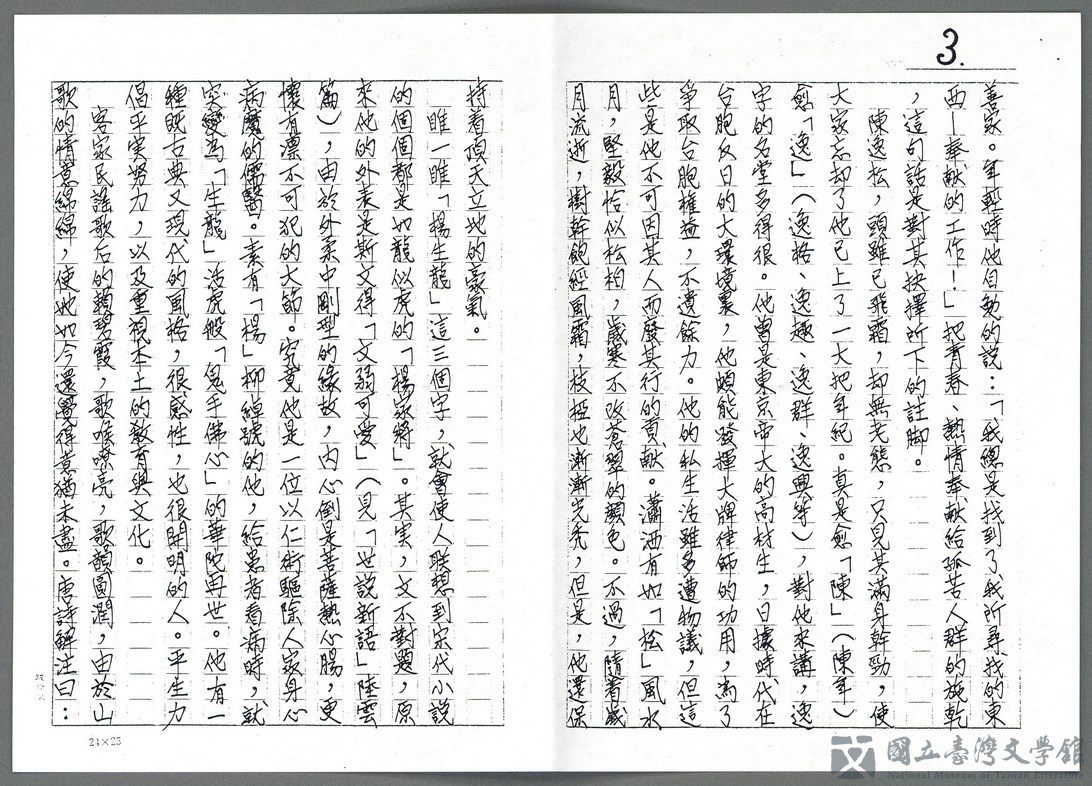 3.
善家。年輕時他自動的說：「我總是找到了我所尋找的東
西—奉献的工作！」把青春、熱情奉献給孤苦人群的施乾
，這句話是對其抉擇所下的註脚。
陳逸松，頭雖已飛霜，却無老態，又見其滿身幹勁，使
大家忘却了他已上了一大把年紀。真是愈「陳」（陳年）
愈「逸」（逸格、逸趣、逸群、逸興等），對他來講，逸
字的名堂多得很。他曾是東京帝大的高材生，日據時代在
台胞反日的大環境裏，他頗能發揮大牌律師的功用，為了
爭取台胞權益，不遺餘力。他的私生活雖多遭物議，但這
些是他不可因其人而廢其行的貢献。瀟洒有如「松」風水
月，堅毅恰似松柏，歲寒不改蒼翠的顏色。不過，隨着歲
月流逝，樹幹飽經風霜，枝椏也漸漸光秃，但是，他還保
持着頂天立地的豪氣。
唯一唯「楊生龍」這三個字，就會使人联想到宋代小說
的個個都是如龍似虎的「楊家將」。其实，文不對題，原
來他的外表是斯文得「文弱可愛」（見「世說新語」陸雲
篇），由於外柔中剛型的緣故，內心倒是菩薩熱心腸，更
懷有凛不可犯的大節。究竟他是一位以仁術驅除人家身心
病魔的儒醫。素有「楊」柳綽號的他，給患者看病時，就
突變為「生龍」活虎般「鬼手佛心」的華陀再世。他有一
種既古典又現代的風格，很感性，也很開明的人。平生力
倡平实努力，以及重視本土的敎育與文化。
客家民謠歌后的賴碧霞，歌喉嘹亮，歌韻圓潤，由於山
歌的情意綿綿，使她如今還覺得意猶未盡。唐詩解注曰：
24×25
國立臺灣文學館
National Museum of Taiwan Literature